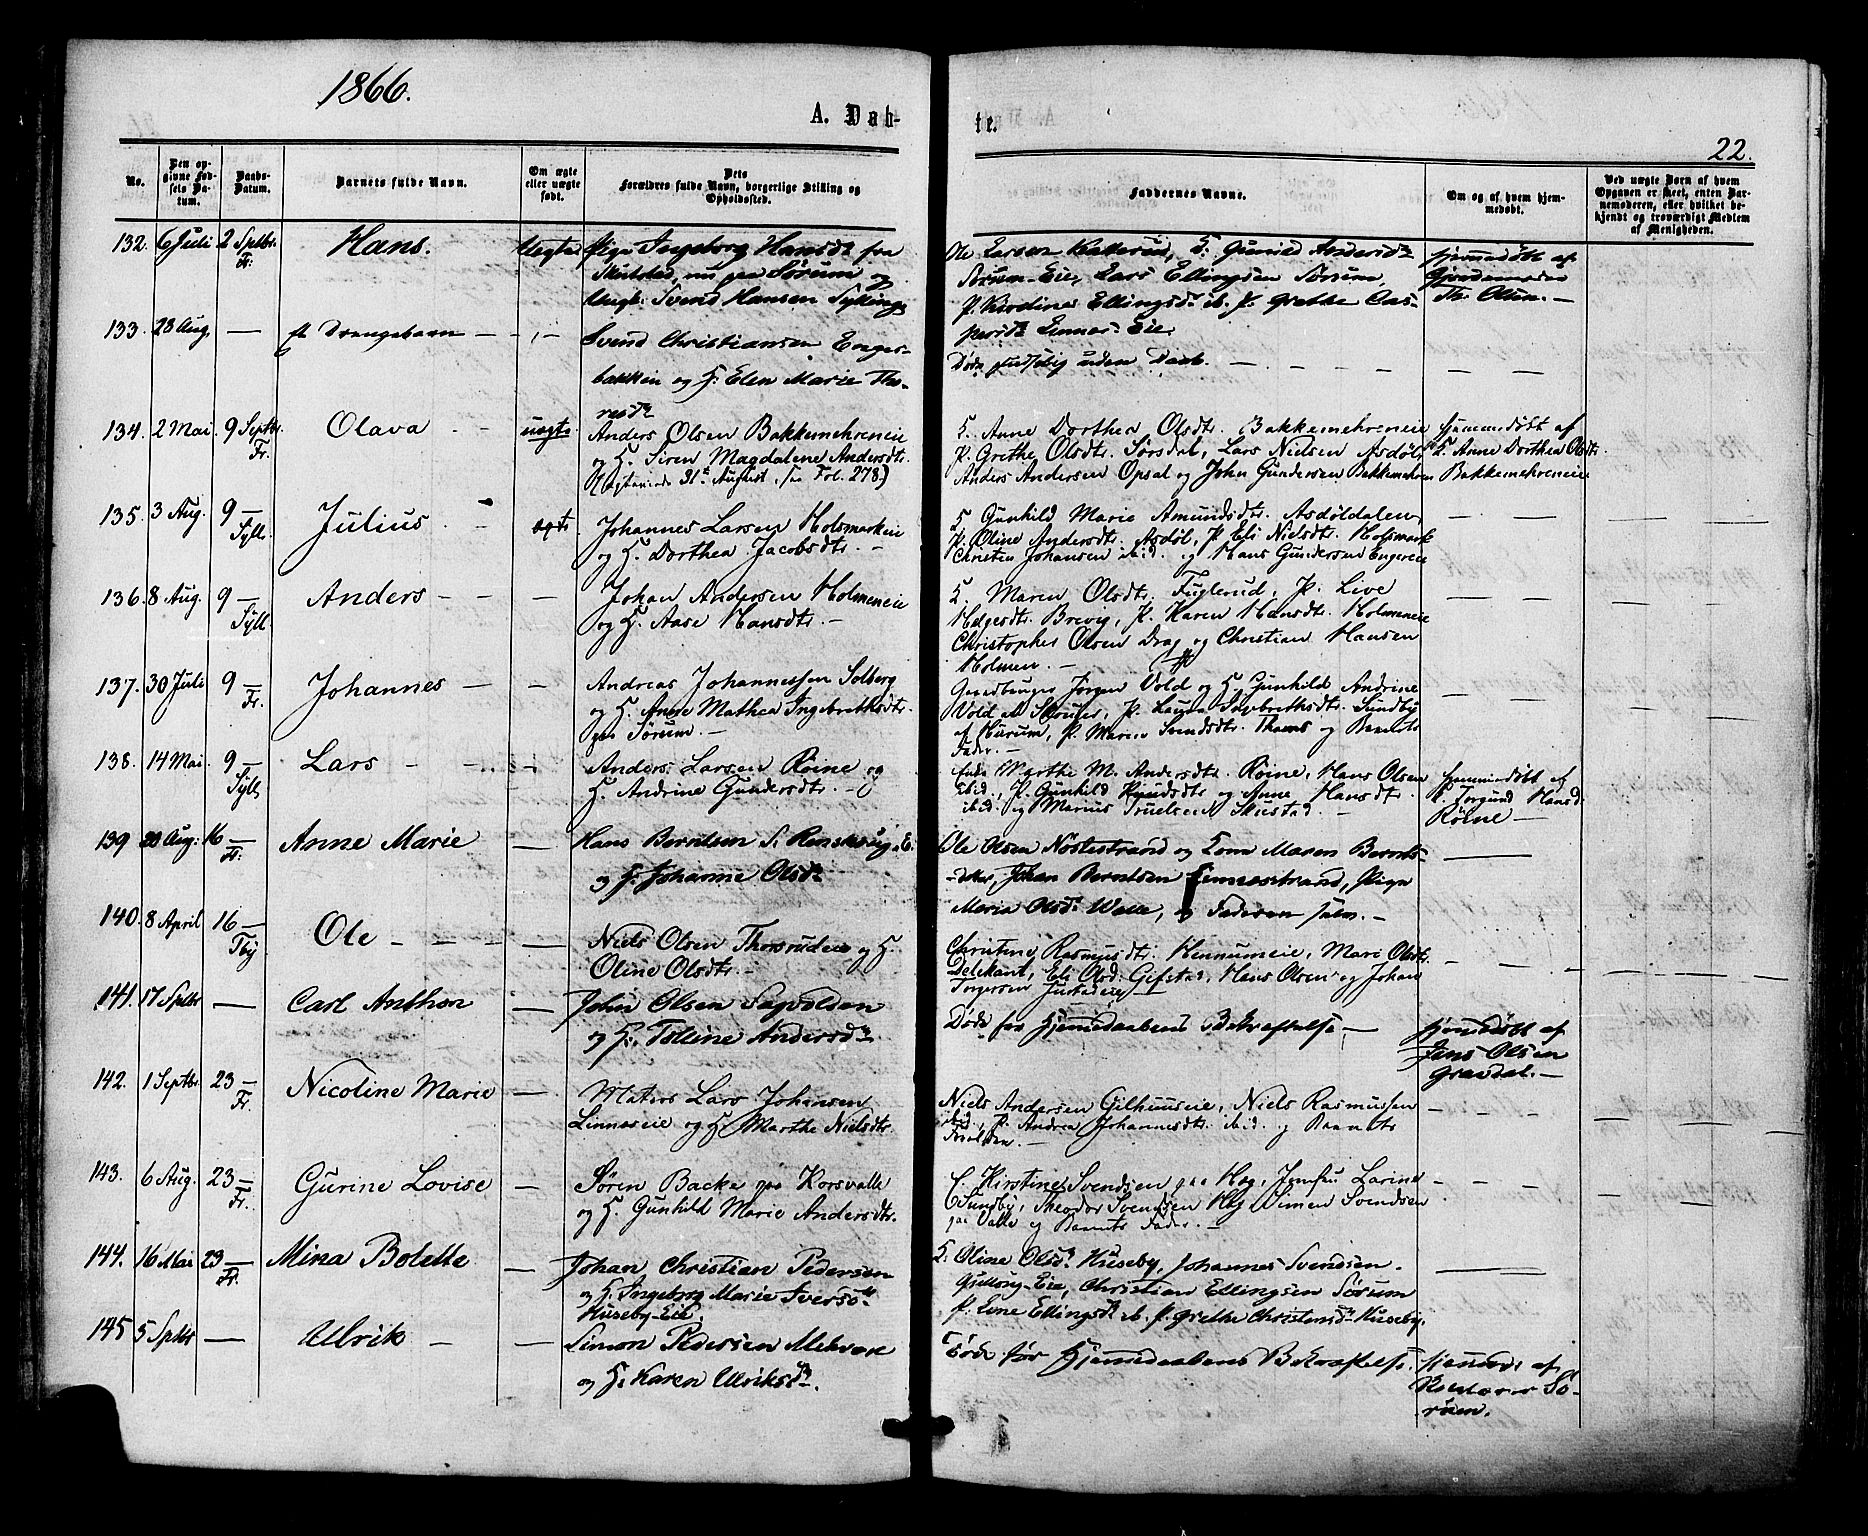 1866.
A. Døb-
te.
22.
No.
Den op-
givne Fød-
sels Da-
tum.
Daabs-
Datum.
Barnets fulde Navn.
Om ægte
eller uægte
født.
Dets
Forældres fulde Navn, borgerlige Stilling og
Opholdssted.
Faddernes Navne.
Om og af hvem hjem-
medøbt.
Ved uægte Børn af hvem
Opgaven er skeet, enten Bar-
nemoderen, eller hvilket be-
kjendt og troværdigt Medlem
af Menigheden.
132. 6 Juli 2 Septbr. Fr. Hans. Uægte
Pige Ingeborg Hansdr fra
nu paa Sørum og
Ungk. Svend Hansen Sylling
Ole Larsen K. Gunild Andersdr
Sørum-Eie, Lars Ellingsen Sørum,
P. Kirdine Ellingsdr ib. P. Grethe Cas-
persdr Linnes-Eie.
Hjemmedøbt af
Gjordemoder
Th. Olsen. —
133. 28 Aug. — et Drengebarn —
Svend Christiansen Enger-
bakken og H. Elen Marie Tho-
resdr
Døde uden Daab. —
134. 2 Mai 9 Septbr. Fr. Olava uægte
Anders Olsen Bakkemehreneie
og H. Siren Magdalene Andersdtr.
31te August, Fol. 278)
K. Anne Dorthea Olsdtr. Bakkemehreneie
P. Grethe Olsdtr. Sørsdal, Lars Nielsen Asdøl,
Anders Andersen Opsal og John Gundersen Bakkemehren
hjemmedøbt af
K. Anne Dorthea Olsdtr.
Bakkemehreneie
135. 3 Aug. 9 — Syll. Julius — ægte
Johannes Larsen Holsmarkeie
og H. Dorthea Jacobsdtr. —
K. Gunhild Marie Amundsdtr. Asdøldalen,
P. Oline Andersdtr. Asdøl, P. Eli Nielsdtr. Holsmark
Christen Johansen ibid. og Hans Gundersen Engereie
136. 8 Aug. 9 — Syll. Anders — —
Johan Andersen Holmeneie
og H. Aase Hansdtr. —
K. Maren Olsdtr. Fuglerud, P. Live
Helgesdtr. Brevig, P. Karen Hansdtr. Holmeneie
Christopher Olsen Drag og Christian Hansen
Holmen. —
137. 30 Juli 9 — Fr. Johannes — —
Andreas Johannessen Solberg
og H. Anne Mathea Ingebrethsdtr.
Sørum. —
Gaardbruger Jørgen Vold og H. Gunhild Andrine
Vold P. Laura Ingebrethsdtr. Sundby
af Hurum, P. Maren Svendsdtr. og Barnets
Fader. —
138. 14 Mai 9 — Syll. Lars — —
Anders Larsen Röine og
H. Andrine Gundersdtr. —
Enke Marthe M. Andersdtr. Röine, Hans Olsen
ibid., P. Gunhild Knudsdtr. og Anne Hansdtr.
ibid. og Marius Truelsen Skustad. —
Hjemmedøbt af
P. Jorgund Hansd.
Röine —
139 20 Aug. 16 — Fr. Anne Marie —
Hans Berntsen S. E.
og H. Johanne Olsdr
Ole Olsen Nøstestrand og Kone Maren Bernts-
datter, Johan Berntsen Linnesstrand, Pige
Maria Olsdr Walle, og Faderen selv. —
140. 8 April 16 — Tby Ole — — —
Niels Olsen Thorsrudeie og H.
Oline Olsdtr. —
Christine Rasmusdtr. Hennumeie, Mari Olsdtr.
Delekant, Eli Olsd. Gifstad, Hans Olsen og Johan
Torgersen Justadeie —
141. 17 Septbr — Carl Anthon —
John Olsen Sagvolden
og H. Tolline Andersdr
Døde før Hjemmedaabens Bekræftelse, —
Hjemmedøbt af
Jens Olsen
Gravdal. —
142. 1 Septbr. 23 — Fr. Nicoline Marie —
Lars Johansen
Linneseie og H. Marthe Nielsdtr.
Niels Andersen Gilhuuseie, Niels Rasmussen
ibid., P. Andrea Johannesdtr. ibid. og Barnets
Forældre. —
143. 6 Aug. 23 — Fr. Gurine Lovise —
Søren Backe paa Korsvalle
og H. Gunhild Marie Andersdtr.
Kirstine Svendsen paa Hæg, Jomfru Larine
Sundby, Theodor Svendsen Hæg, Simen Svendsen
paa Valle og Barnets Fader. —
144. 16 Mai 23 — Fr. Mina Bolette —
Johan Christian Pedersen
og H. Ingeborg Marie Iversdr
Huseby-Eie.
K. Oline Olsdr Huseby, Johannes Svendsen
Eie, Christian Ellingsen Sørum
P. Lene Ellingsdr ib. P. Grethe Christensdr Huseby.
145 5 Septbr — Ulrik — —
Simon Pedersen Mehvare
og H. Karen Ulriksdr.
Døde før Hjemmedaabens Bekræftelse.
hjemmed. af
Sö-
rum.